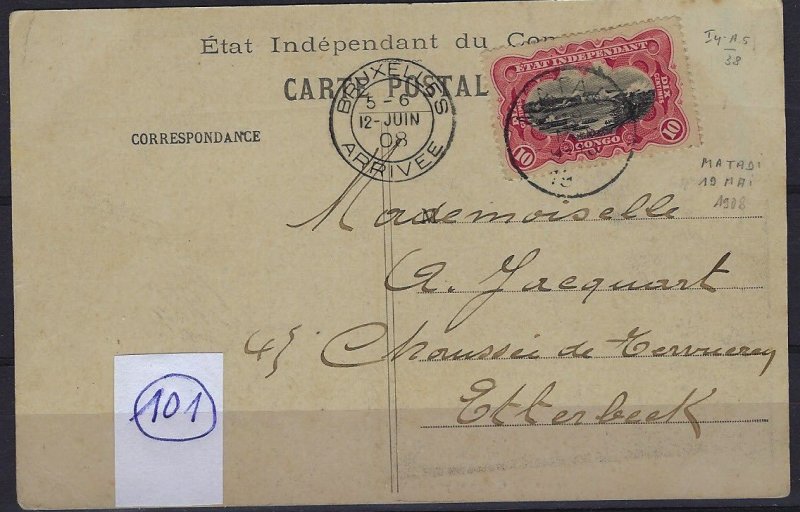 État Indépendant du Con
CARTE POSTAL
CORRESPONDANCE
BRUXELLES
5-6
12-JUIN
08
ARRIVÉE
ÉTAT INDÉPENDANT
DIX
CENTIMES
10
CONGO
10
38
MATADI
19 MAI
1908
Mademoiselle
A. Jacquart
45 Chaussée de Tervueren
Etterbeek
101